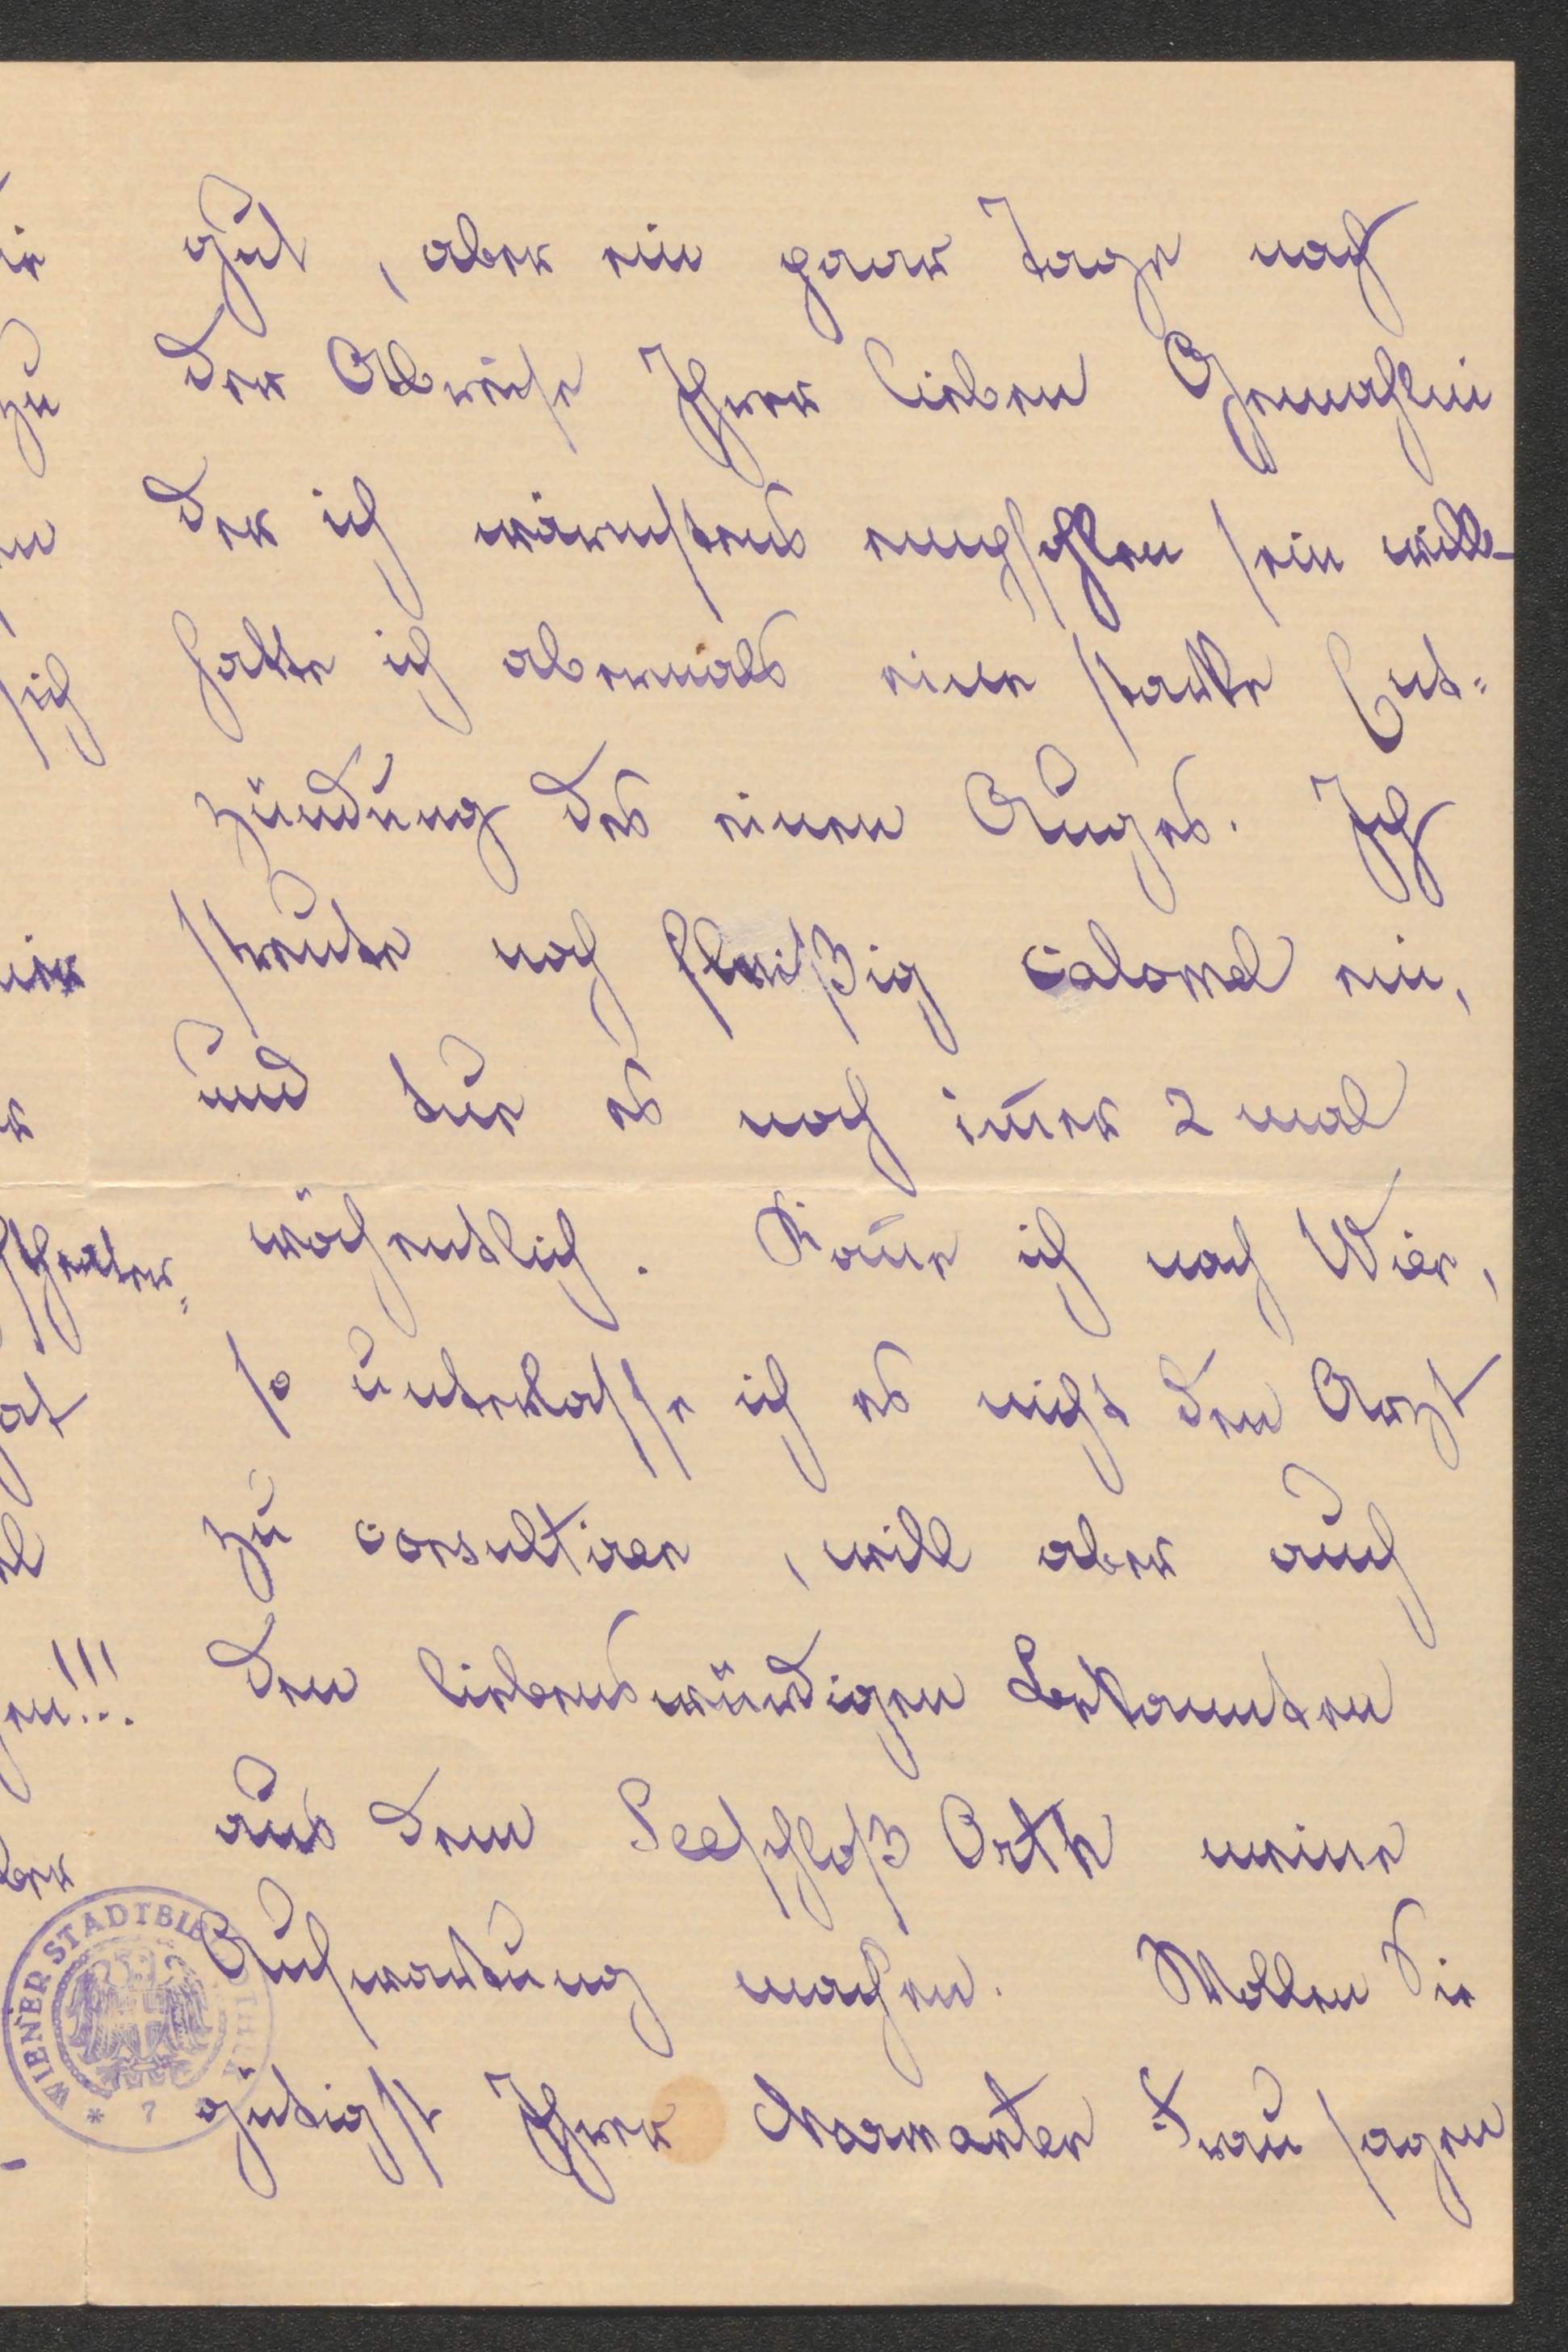 gut, aber ein paar Tage nach
der Abreise Ihrer lieben Gemahlin
der ich wärmstens empfohlen sein will–
hatte ich abermals eine starke Ent=
zündung des einen Auges. Ich
streute noch fleißig Calomel ein,
und tue es noch im̄er 2 mal
wöchentlich. Kom̄e ich nach Wien,
so unterlasse ich es nicht den Arzt
zu consultiren, will aber auch
den liebenswürdigen Bekannten
aus dem Seeschloß Orth meine
Aufwartung machen. Wollen Sie
gütigst Ihrer charmanten Frau sagen
WIENER STADTBIBLIOTHEK
* 7 *